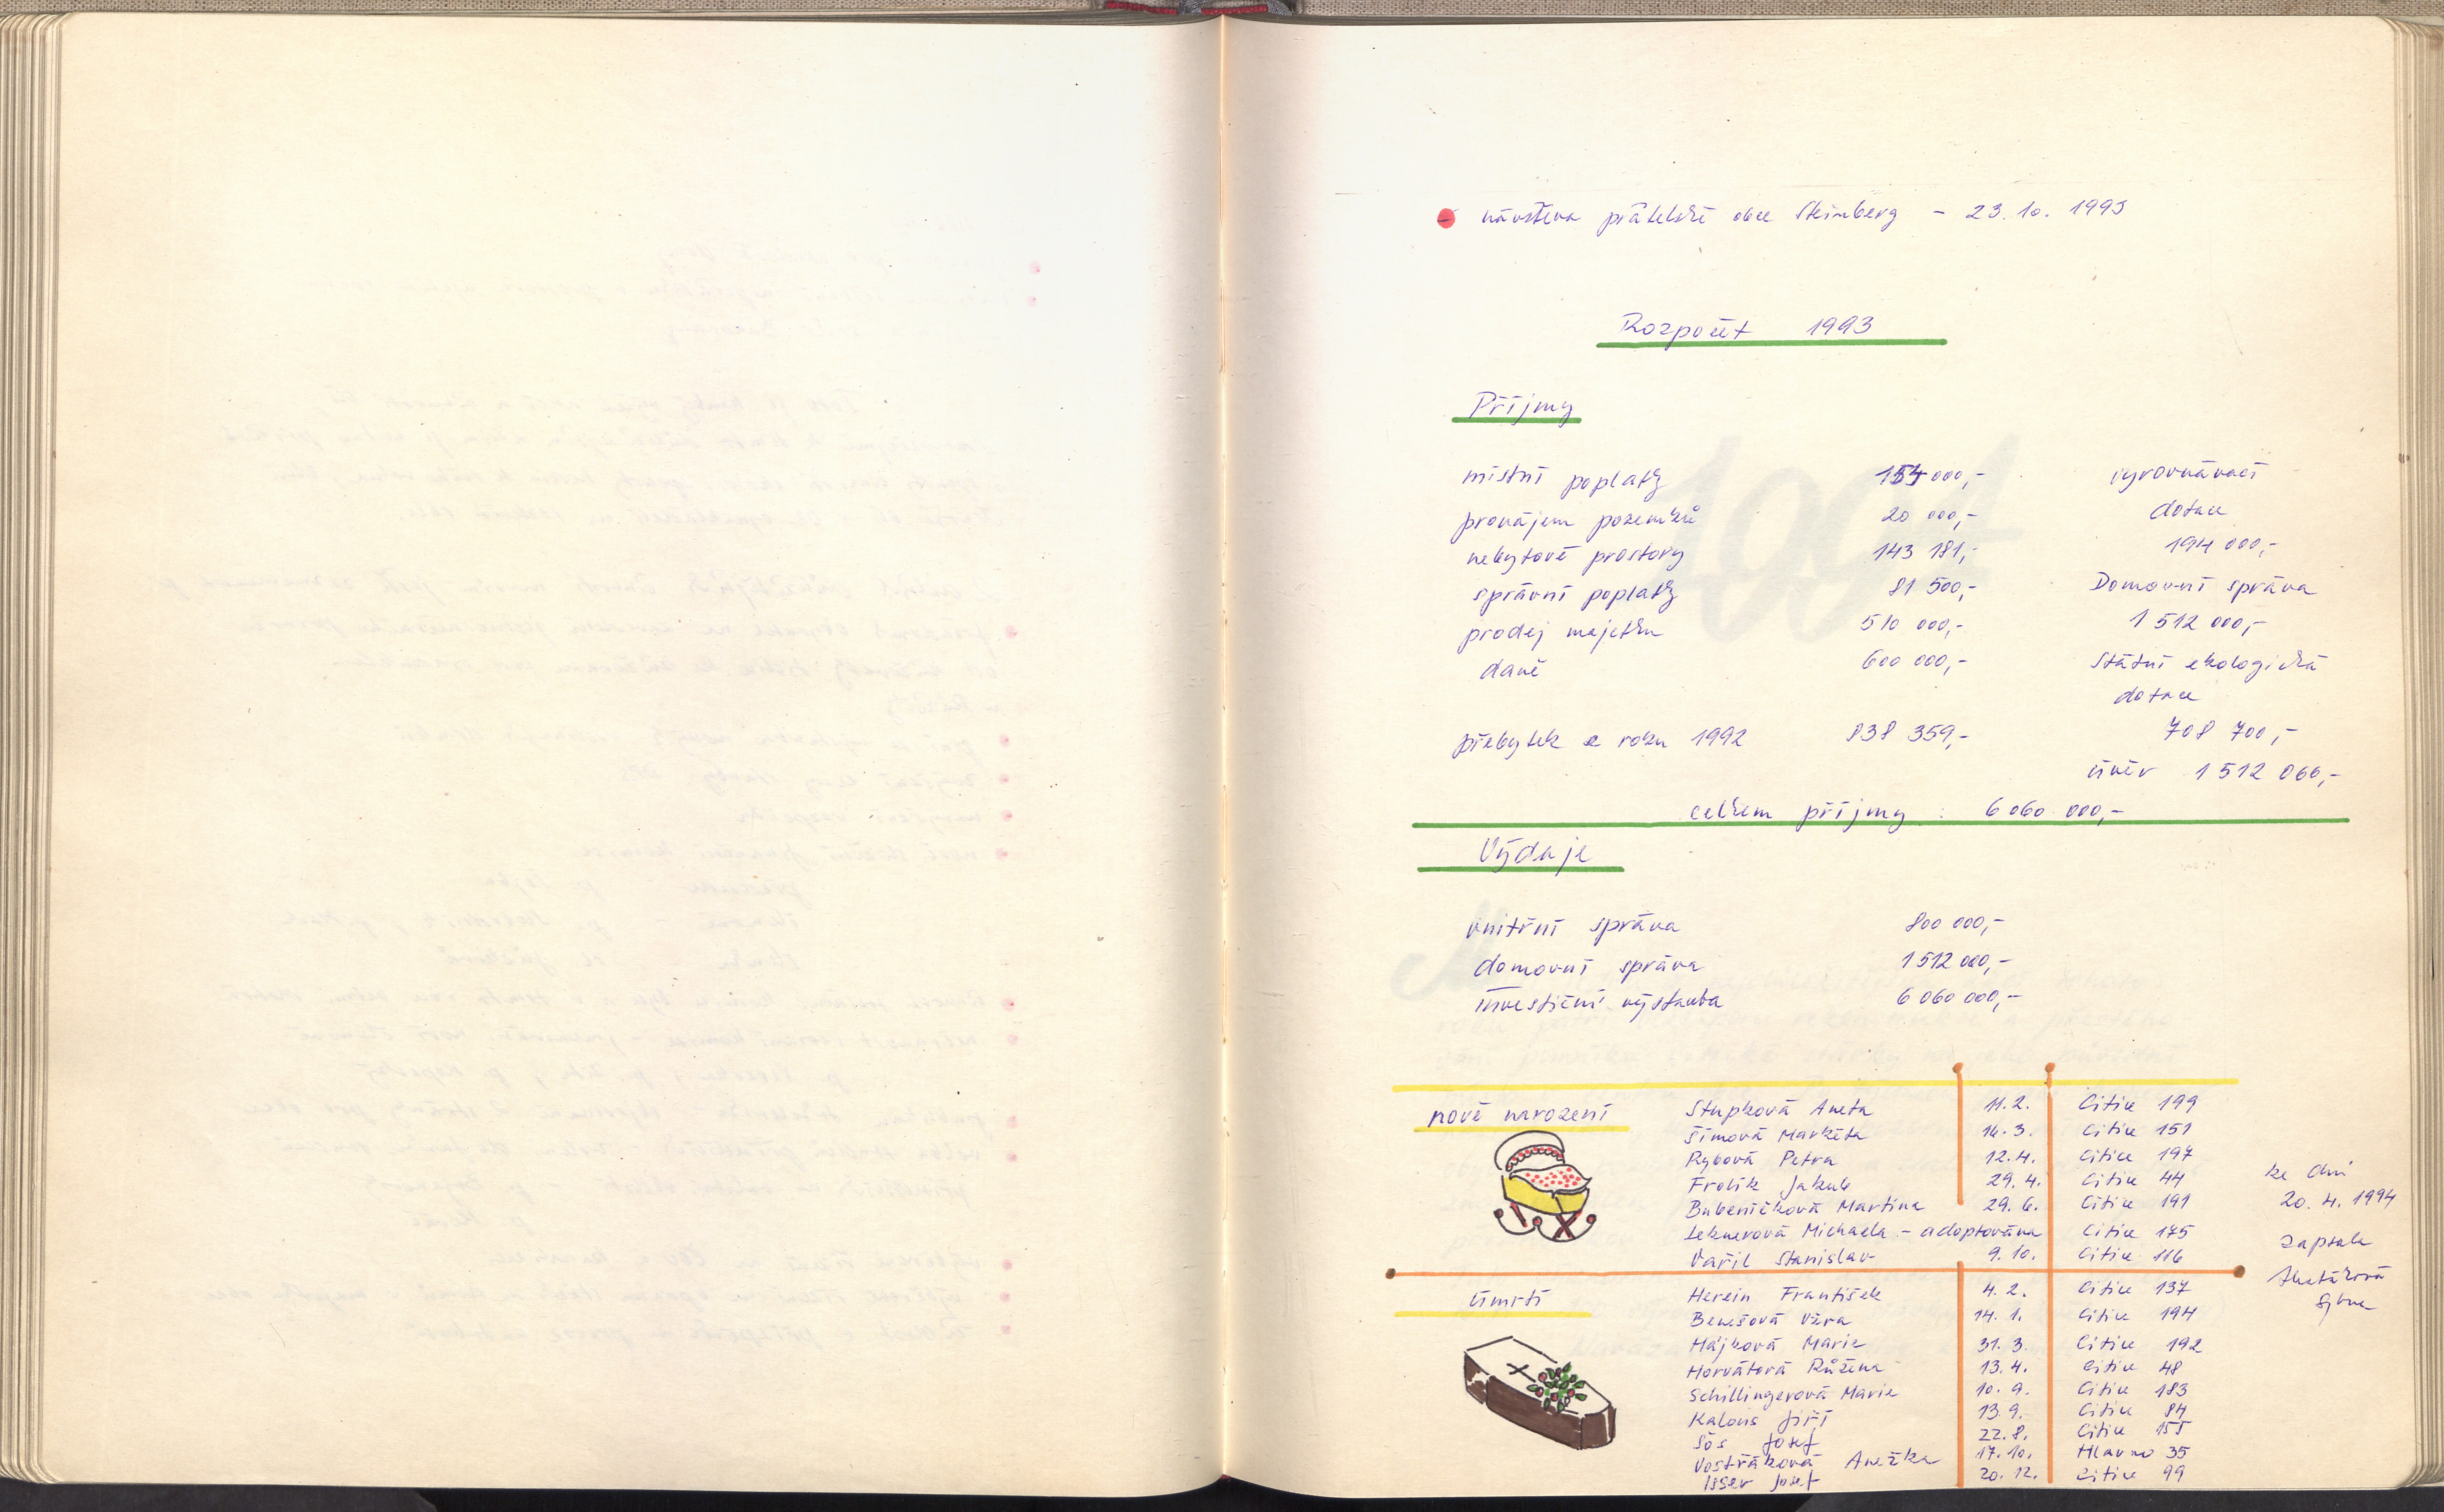 návštěva přátelské obce Steinberg - 23. 10. 1993
Rozpočet 1993
Příjmy
místní poplatky 154 000,- vyrovnávací
pronájem pozemků 20 000,- dotace
nebytové prostory 143 181,- 194 000,-
správní poplatky 81 500,- Domovní správa
prodej majetku 510 000,- 1 512 000,-
daně 600 000,- Státní ekologická
dotace
přebytek z roku 1992 838 359,- 708 700,-
úvěr 1 512 066,-
celkem příjmy : 6 060 000,-
Výdaje
vnitřní správa 800 000,-
domovní správa 1 512 000,-
investiční výstavba 6 060 000,-
nově narození Stupková Aneta 11. 2. Citice 199
Šímová Markéta 14. 3. Citice 151
Rybová Petra 12. 4. Citice 197
Frolík Jakub 29. 4. Citice 44
Bubeníčková Martina 29. 6. Citice 191
Leknerová Michaela - adoptována Citice 175
Vařil Stanislav 9. 10. Citice 116
ke dni
20. 4. 1994
zapsala
Sylva
úmrtí Herein František 4. 2. Citice 137
Benešová Věra 14. 1. Citice 194
Hájková Marie 31. 3. Citice 192
Horvátová Růžena 13. 4. Citice 48
Schillingerová Marie 10. 9. Citice 183
Kalous Jiří 13. 9. Citice 84
Sós Josef 22. 8. Citice 155
Vostřáková Anežka 17. 10. Hlavno 35
Isser Josef 20. 12. Citice 99